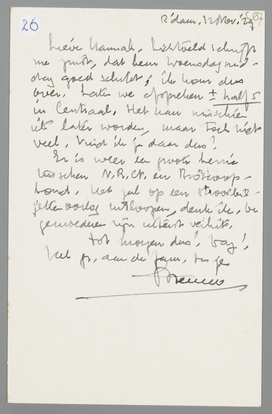 26
R'dam, 12 Nov. '29
87
Lieve Hannah, Lichtveld schrijft
me juist, dat hem Woensdagmid-
dag goed schikt; ik kom dus
over. Laten we afspreken ± half 5
in Centraal. Het kan misschien
iets later worden, maar toch niet
veel. Vind ik je daar dus?
Er is weer een groote herrie
tusschen N.R.Ct. en Bioscoop-
bond. Het zal op een
oorlog uitloopen, denk ik, de
gemoederen zijn uiterst verhit.
Tot morgen dus! Dag!
Veel gr. aan de fam., van je